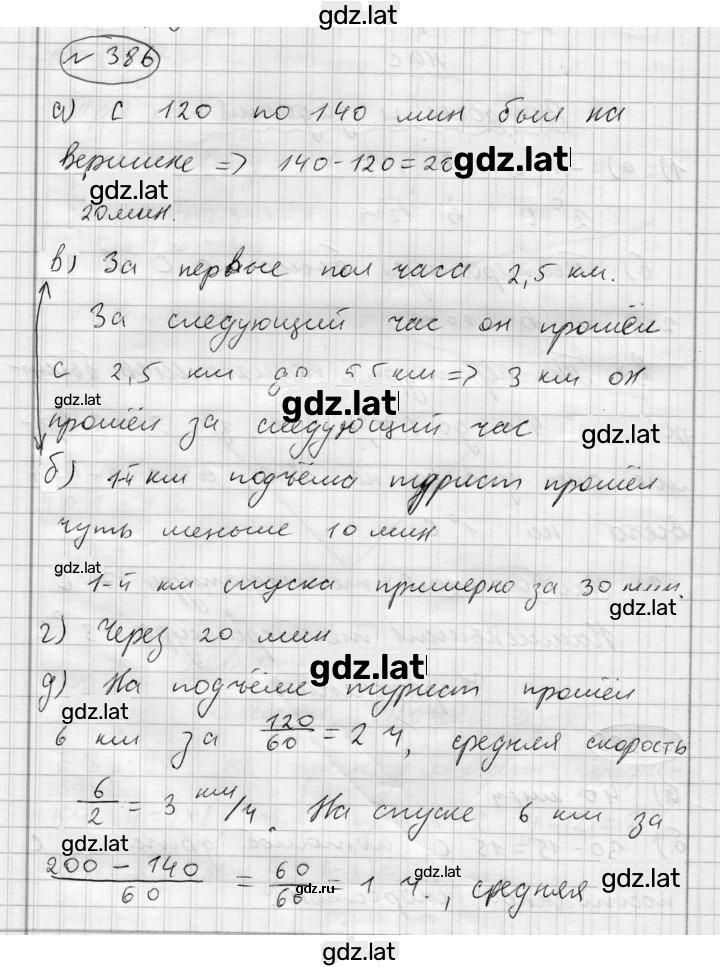 gdz.lat
№ 386
а) С 120 по 140 мин был на
вершине => 140-120=20 gdz.lat
gdz.lat
20мин.
в) За первые пол часа 2,5 км.
За следующий час он прошёл
с 2,5 км до 5,5 км => 3 км он
gdz.lat
прошёл за следующий час gdz.lat
б) 1-й км подъёма турист прошёл
чуть меньше 10 мин
gdz.lat
1-й км спуска примерно за 30 мин.
gdz.lat
г) Через 20 мин
gdz.lat
д) На подъёме турист прошёл
gdz.lat
6 км за 120/60 = 2 ч, средняя скорость
6/2 = 3 км/ч. На спуске 6 км за
gdz.lat
200 - 140/60 = 60/60 = 1 ч., средняя
gdz.ru gdz.lat gdz.lat
gdz.lat